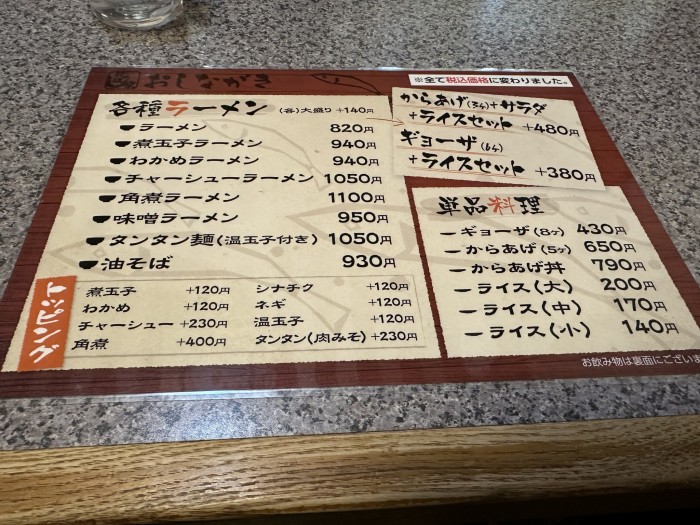 おしながき
※全て税込価格に変わりました。
各種ラーメン (各)大盛り +140円
ラーメン 820円
煮玉子ラーメン 940円
わかめラーメン 940円
チャーシューラーメン 1050円
角煮ラーメン 1100円
味噌ラーメン 950円
タンタン麺(温玉子付き) 1050円
油そば 930円
トッピング
煮玉子 +120円
わかめ +120円
チャーシュー +230円
角煮 +400円
シナチク +120円
ネギ +120円
温玉子 +120円
タンタン(肉みそ) +230円
からあげ(3ケ)+サラダ
+ライスセット +480円
ギョーザ(6ケ)
+ライスセット +380円
単品料理
ギョーザ(8ヶ) 430円
からあげ(5ヶ) 650円
からあげ丼 790円
ライス(大) 200円
ライス(中) 170円
ライス(小) 140円
お飲み物は裏面にございま